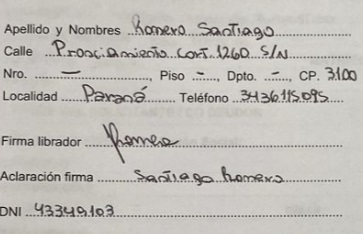 Apellido y Nombres Romero Santiago
Calle Cort. 1260 S/N
Nro. —, Piso -, Dpto. -, CP. 3100
Localidad Paraná Teléfono 3436115095
Firma librador Romero
Aclaración firma Santiago Romero
DNI 43349103